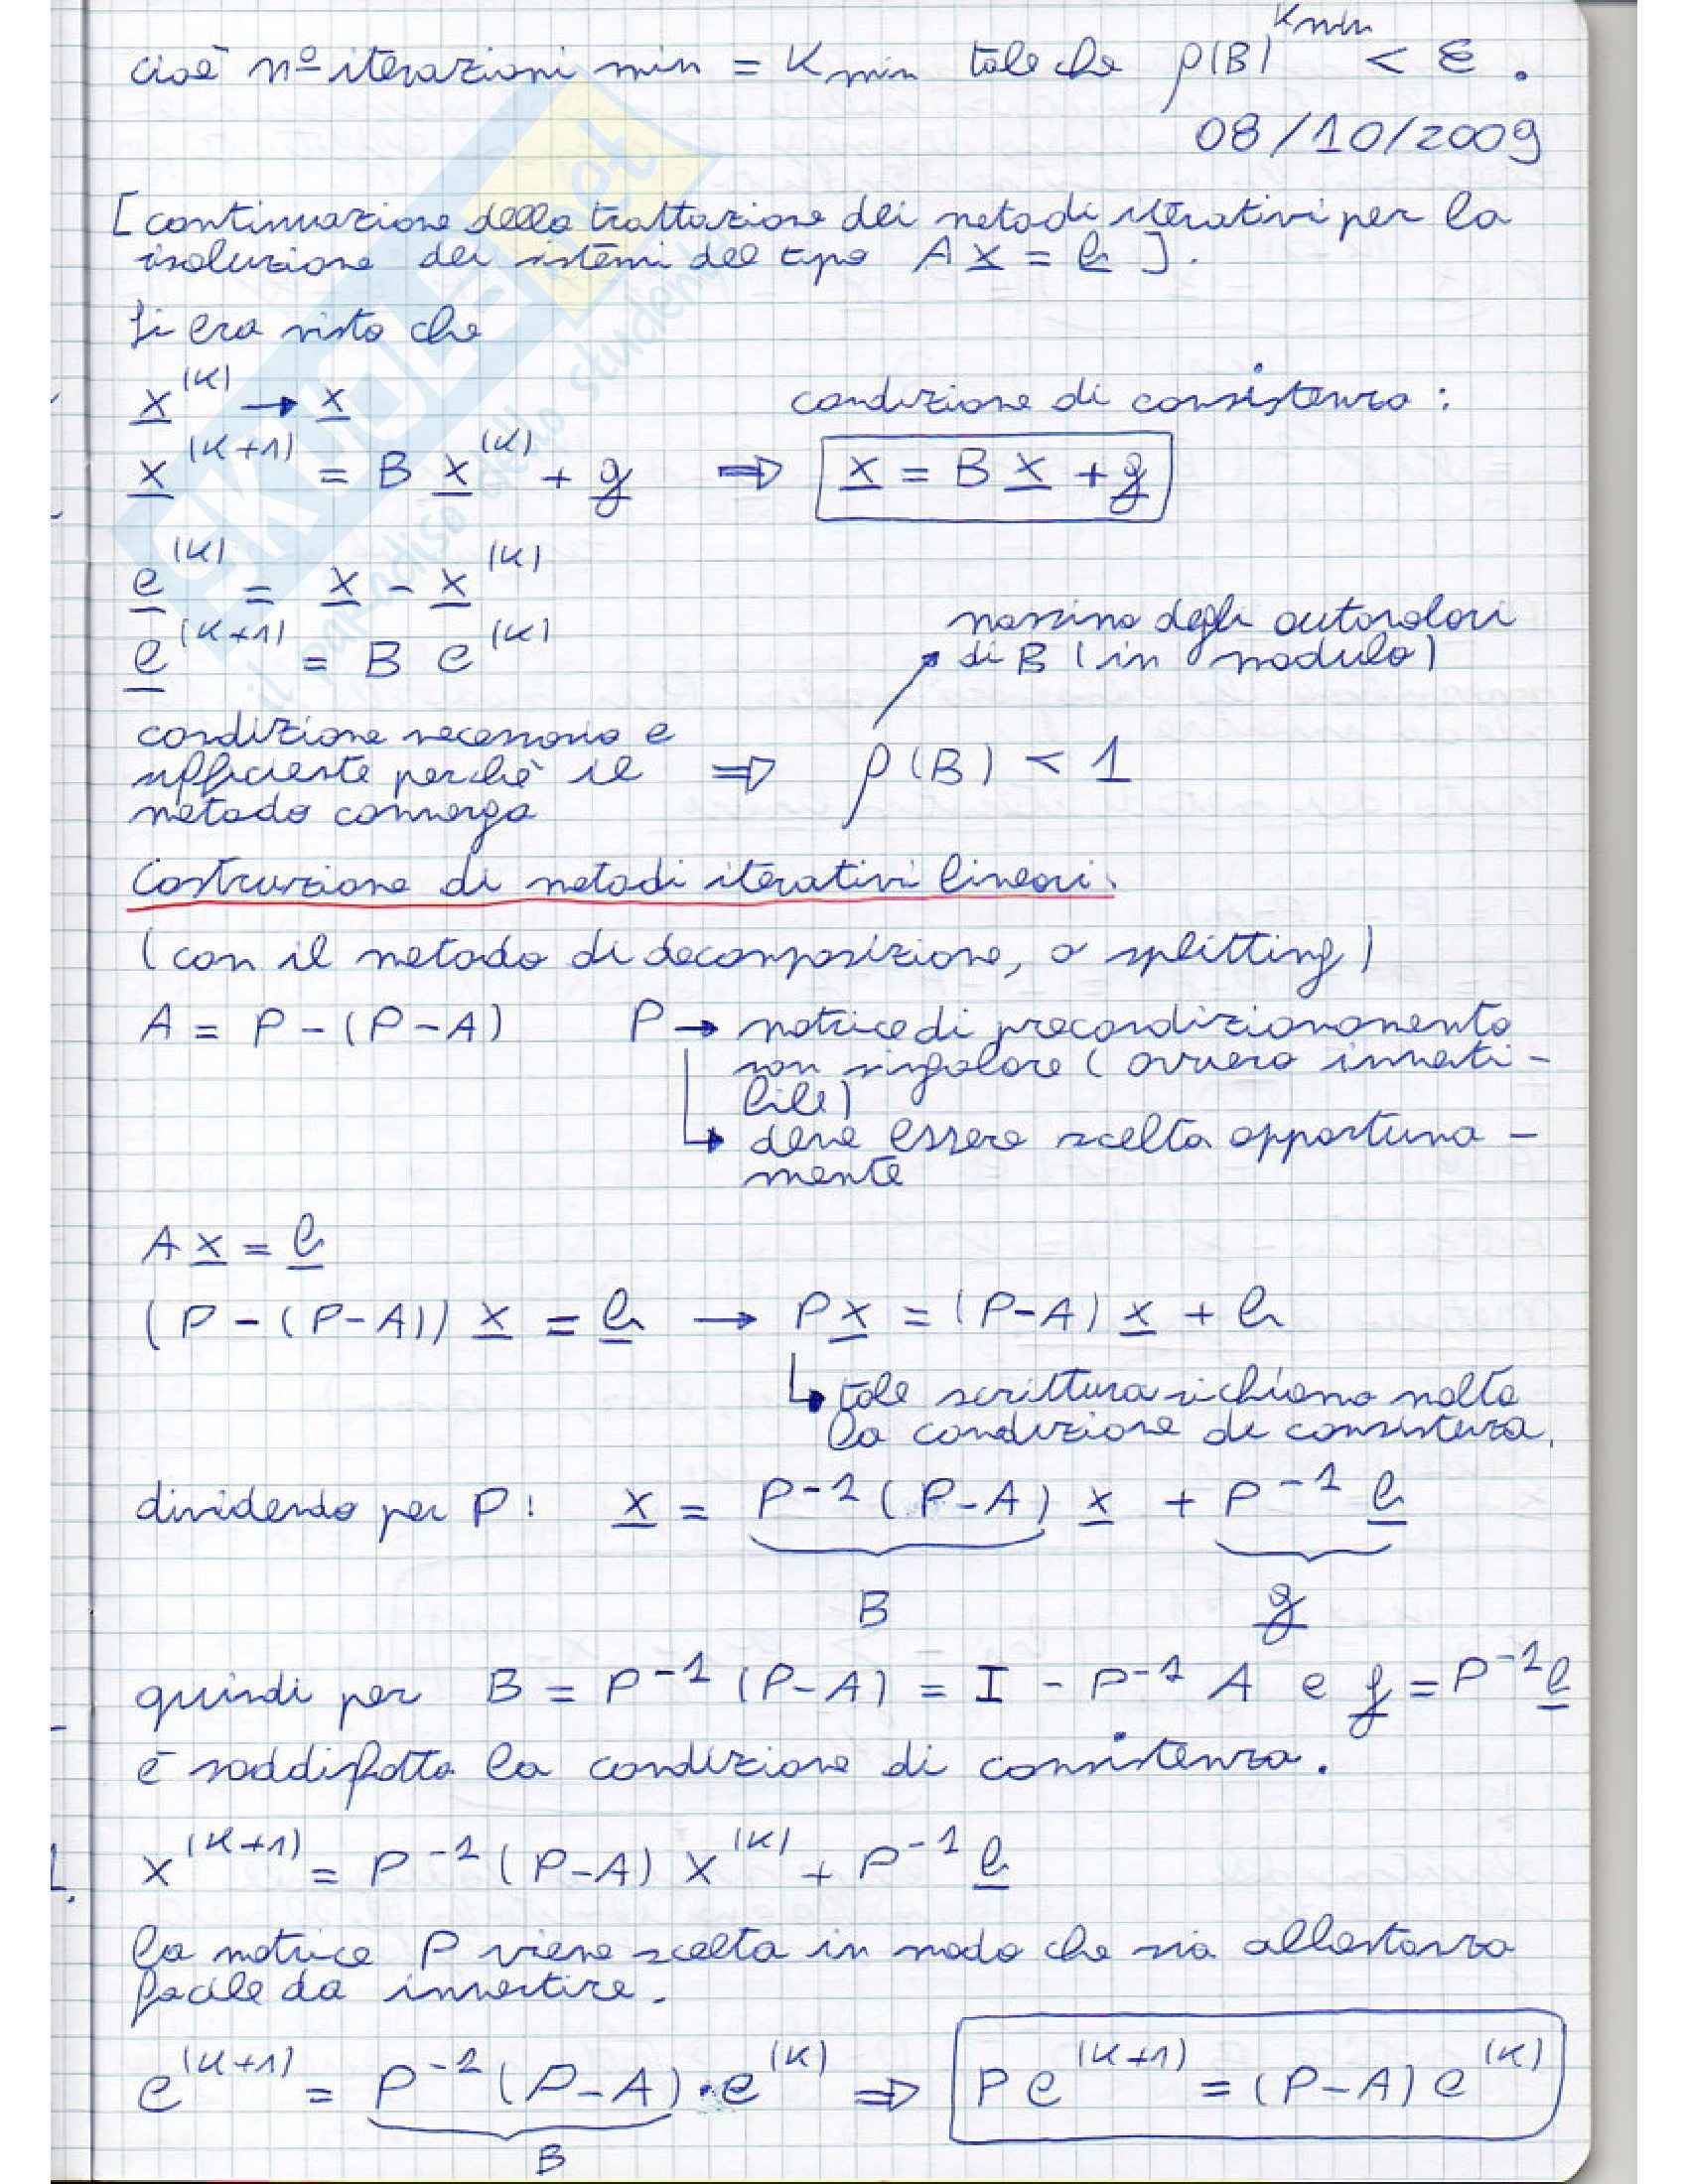 cioè nº iterazioni min = Kmin tale che ρ(B)^Kmin < ε.
08/10/2009
[continuazione della trattazione dei metodi iterativi per la
risoluzione dei sistemi del tipo A x = b ].
Si era visto che
x^(K) → x condizione di consistenza:
x^(K+1) = B x^(K) + g ⇒ x = B x + g
e^(K) = x - x^(K)
e^(K+1) = B e^(K)
massimo degli autovalori
di B (in modulo)
condizione necessaria e
sufficiente perchè il ⇒ ρ(B) < 1
metodo converga
Costruzione di metodi iterativi lineari.
(con il metodo di decomposizione, o splitting)
A = P - (P-A) P → matrice di precondizionamento
non singolare (ovvero inverti-
bile)
deve essere scelta opportuna-
mente
A x = b
(P - (P-A)) x = b → P x = (P-A) x + b
↳ tale scrittura richiama molto
la condizione di consistenza.
dividendo per P: x = P^-1 (P-A) x + P^-1 b
B g
quindi per B = P^-1 (P-A) = I - P^-1 A e g = P^-1 b
è soddisfatta la condizione di consistenza.
x^(K+1) = P^-1 (P-A) x^(K) + P^-1 b
la matrice P viene scelta in modo che sia abbastanza
facile da invertire.
e^(K+1) = P^-1 (P-A) · e^(K) ⇒ P e^(K+1) = (P-A) e^(K)
B
SKUOLA.net
il paradiso dello studente